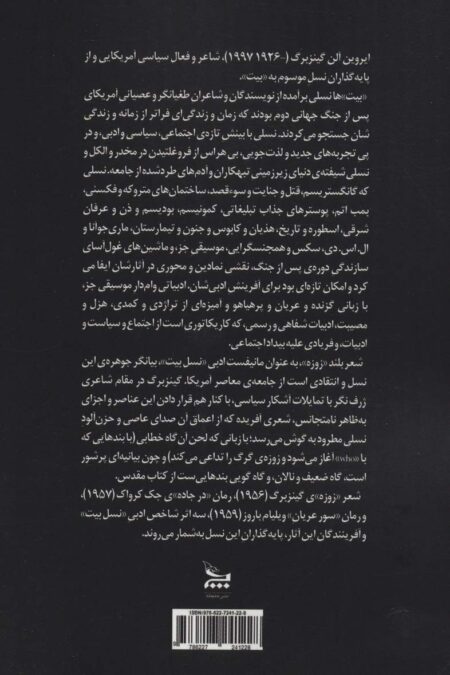 ایروین آلن گینزبرگ (-۱۹۲۶ ۱۹۹۷)، شاعر و فعال سیاسی آمریکایی و از
پایه‌گذاران نسل موسوم به «بیت».
«بیت»ها نسلی برآمده از نویسندگان و شاعران طغیانگر و عصیانی آمریکای
پس از جنگ جهانی دوم بودند که زمان و زندگی‌ای فراتر از زمانه و زندگی
شان جستجو می‌کردند. نسلی با بینش تازه‌ی اجتماعی، سیاسی و ادبی، و در
پی تجربه‌های جدید و لذت‌جویی، بی‌هراس از فروغلتیدن در مخدر و الکل و
نسلی شیفته‌ی دنیای زیرزمینی تبهکاران و آدم‌های طردشده از جامعه. نسلی
که گانگستریسم، قتل و جنایت و سوءقصد، ساختمان‌های متروکه و فکسنی،
بمب اتم، پوسترهای جذاب تبلیغاتی، کمونیسم، بودیسم و ذن و عرفان
شرقی، اسطوره و تاریخ، هذیان و کابوس و جنون و تیمارستان، ماری‌جوانا و
ال.اس.دی، سکس و همجنسگرایی، موسیقی جز، و ماشین‌های غول‌آسای
سازندگی دوره‌ی پس از جنگ، نقشی نمادین و محوری در آثارشان ایفا می
کرد و امکان تازه‌ای بود برای آفرینش ادبی‌شان. ادبیاتی وام‌دار موسیقی جز،
با زبانی گزنده و عریان و پرهیاهو و آمیزه‌ای از تراژدی و کمدی، هزل و
مصیبت، ادبیات شفاهی و رسمی، که کاریکاتوری است از اجتماع و سیاست و
ادبیات، و فریادی علیه بیداد اجتماعی.
شعر بلند «زوزه»، به عنوان مانیفست ادبی «نسل بیت»، بیانگر جوهره‌ی این
نسل و انتقادی است از جامعه‌ی معاصر آمریکا. گینزبرگ در مقام شاعری
ژرف نگر با تمایلات آشکار سیاسی، با کنار هم قرار دادن این عناصر و اجزای
به‌ظاهر نامتجانس، شعری آفریده که از اعماق آن صدای عاصی و حزن‌آلود
نسلی مطرود به گوش می‌رسد؛ با زبانی که لحن آن گاه خطابی (با بندهایی که
با «who» آغاز می‌شود و زوزه‌ی گرگ را تداعی می‌کند) و چون بیانیه‌ای پرشور
است، گاه ضعیف و نالان، و گاه گویی بندهایی‌ست از کتاب مقدس.
شعر «زوزه»ی گینزبرگ (۱۹۵۶)، رمان «در جاده»ی جک کرواک (۱۹۵۷)،
و رمان «سور عریان» ویلیام باروز (۱۹۵۹)، سه اثر شاخص ادبی «نسل بیت»
و آفرینندگان این آثار، پایه‌گذاران این نسل به‌شمار می‌روند.
ISBN: 978-622-7241-22-8
9 786227 241228